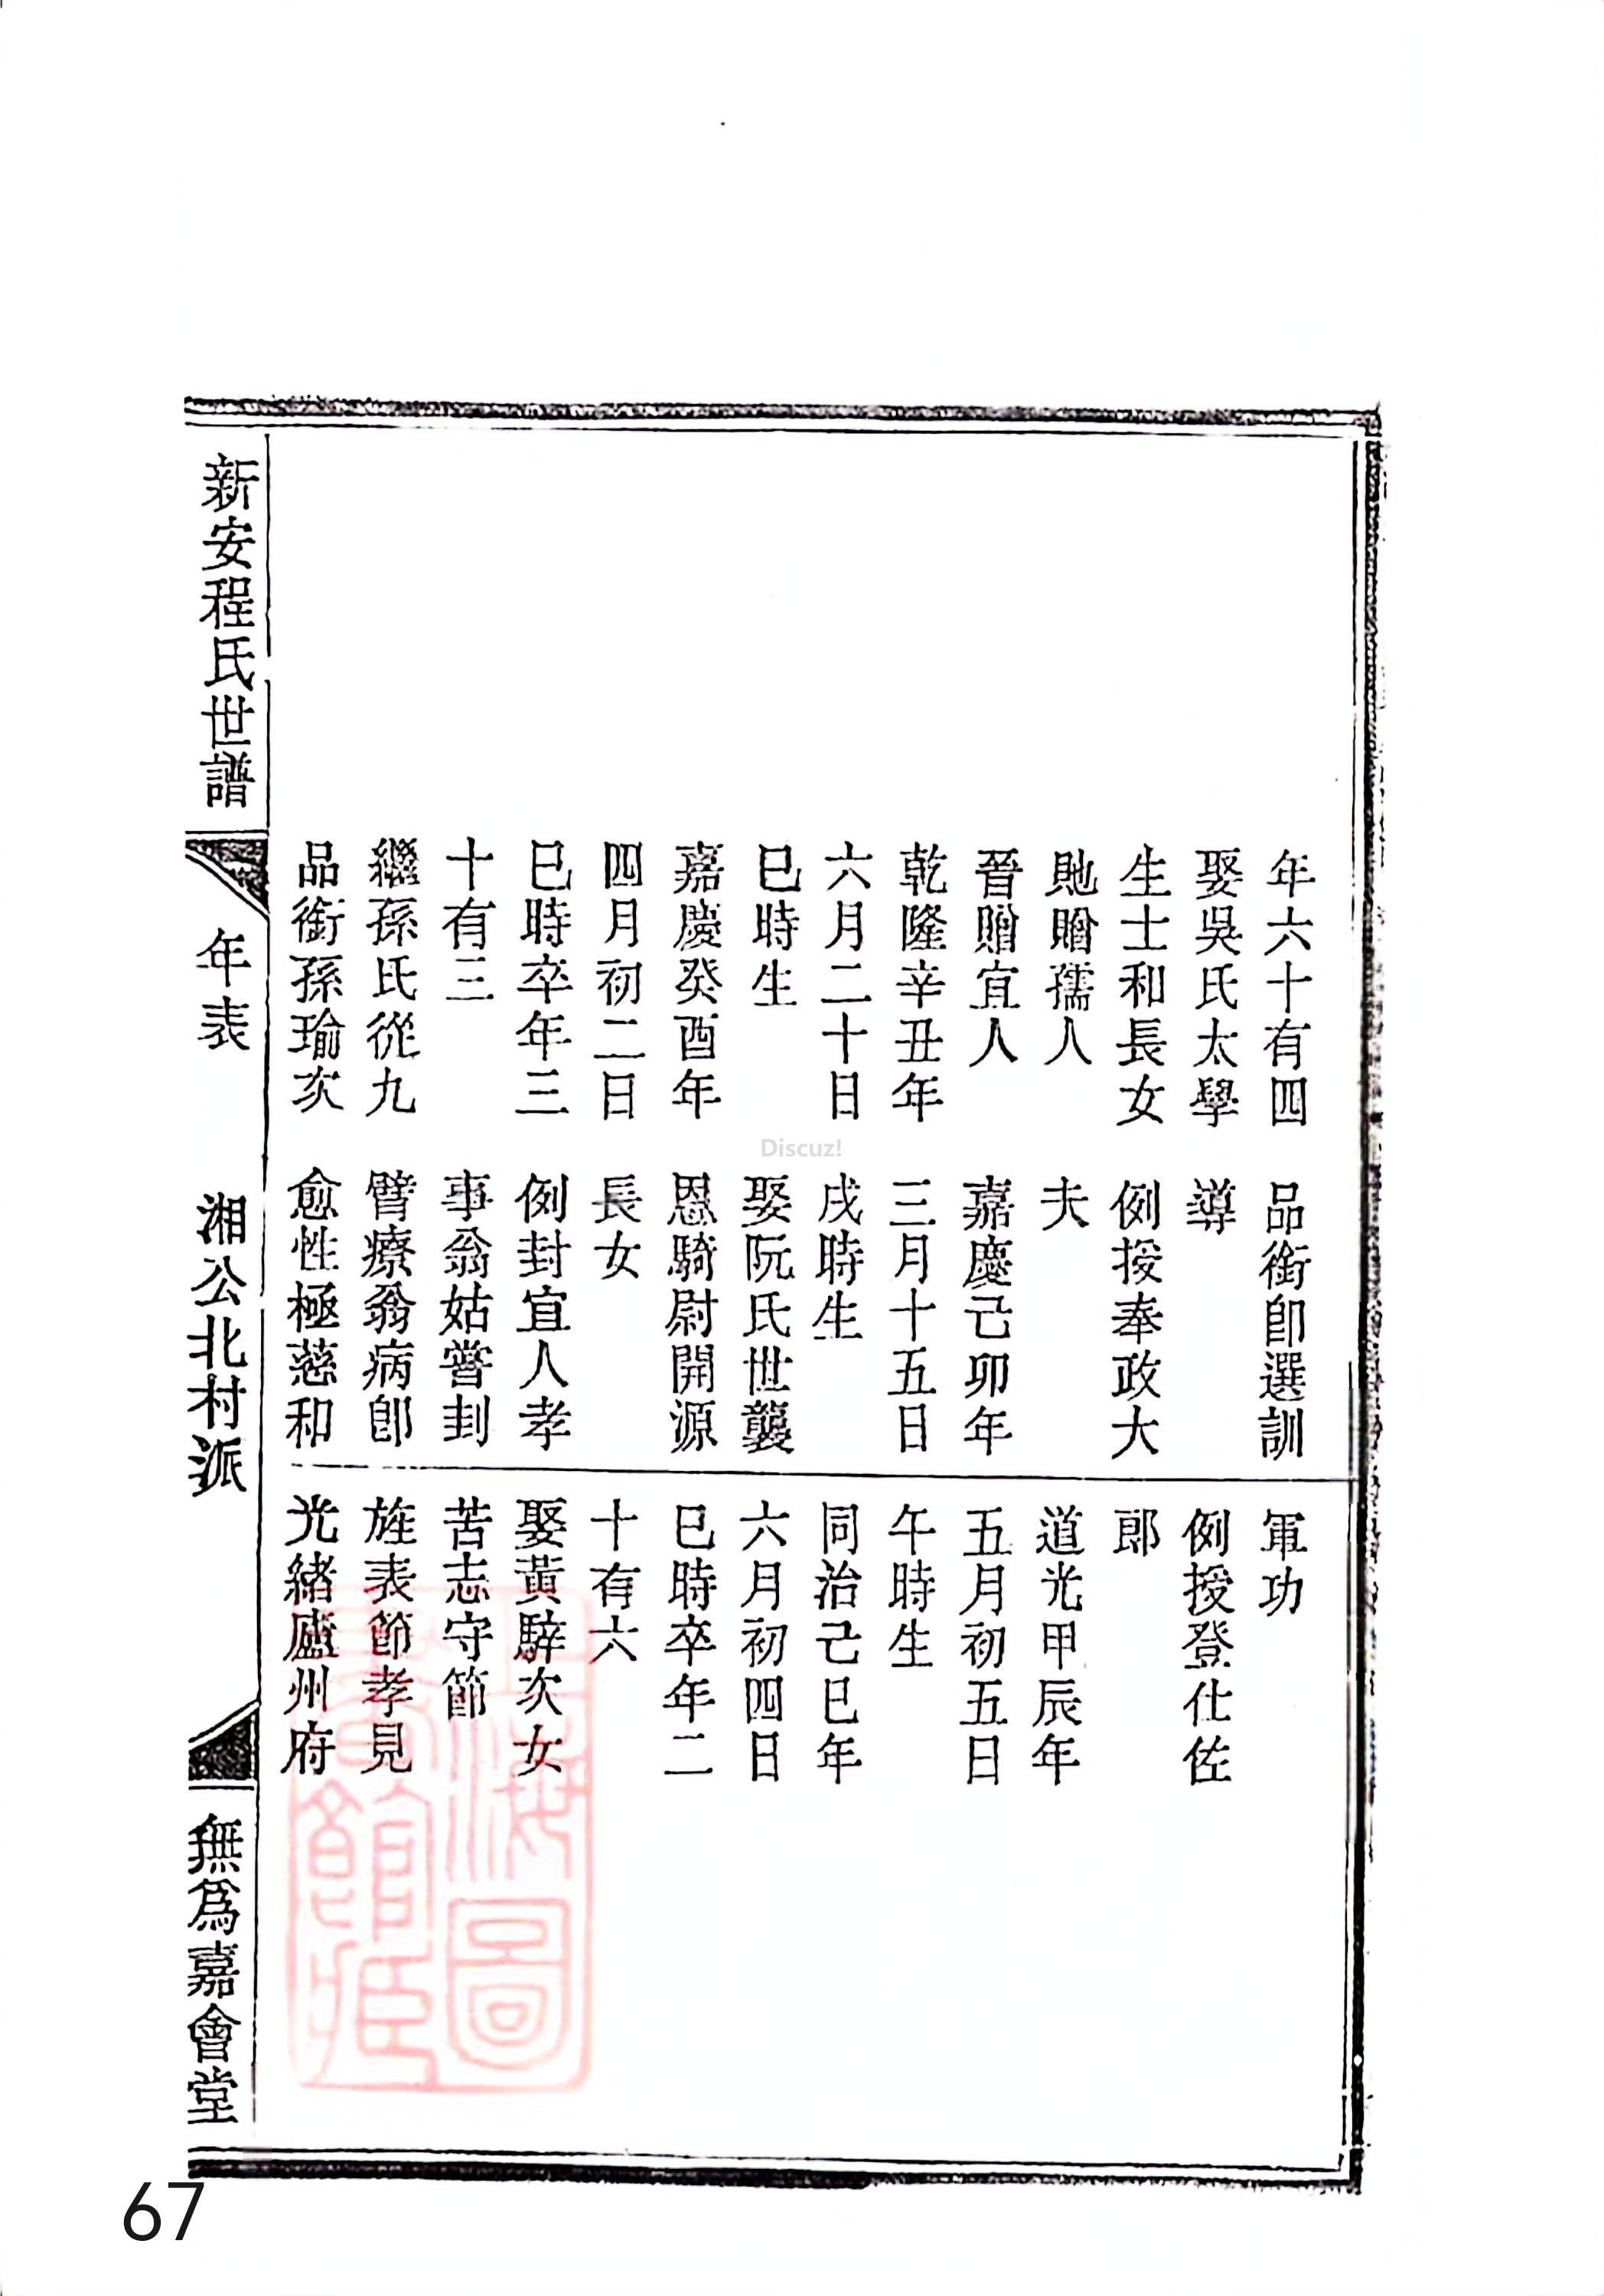 年六十有四
娶吳氏太學
生士和長女
貤贈孺人
晉贈宜人
乾隆辛丑年
六月二十日
巳時生
嘉慶癸酉年
四月初二日
巳時卒年三
十有三
繼孫氏從九
品銜孫瑜次
品銜卽選訓
導
例授奉政大
夫
嘉慶己卯年
三月十五日
戌時生
娶阮氏世襲
恩騎尉開源
長女
例封宜人孝
事翁姑嘗刲
臂療翁病卽
愈性極慈和
軍功
例授登仕佐
郎
道光甲辰年
五月初五日
午時生
同治己巳年
六月初四日
巳時卒年二
十有六
娶黃騂次女
苦志守節
旌表節孝見
光緒廬州府
新安程氏世譜
年表
湘公北村派
無爲嘉會堂
上海圖
書館藏
Discuz!
67